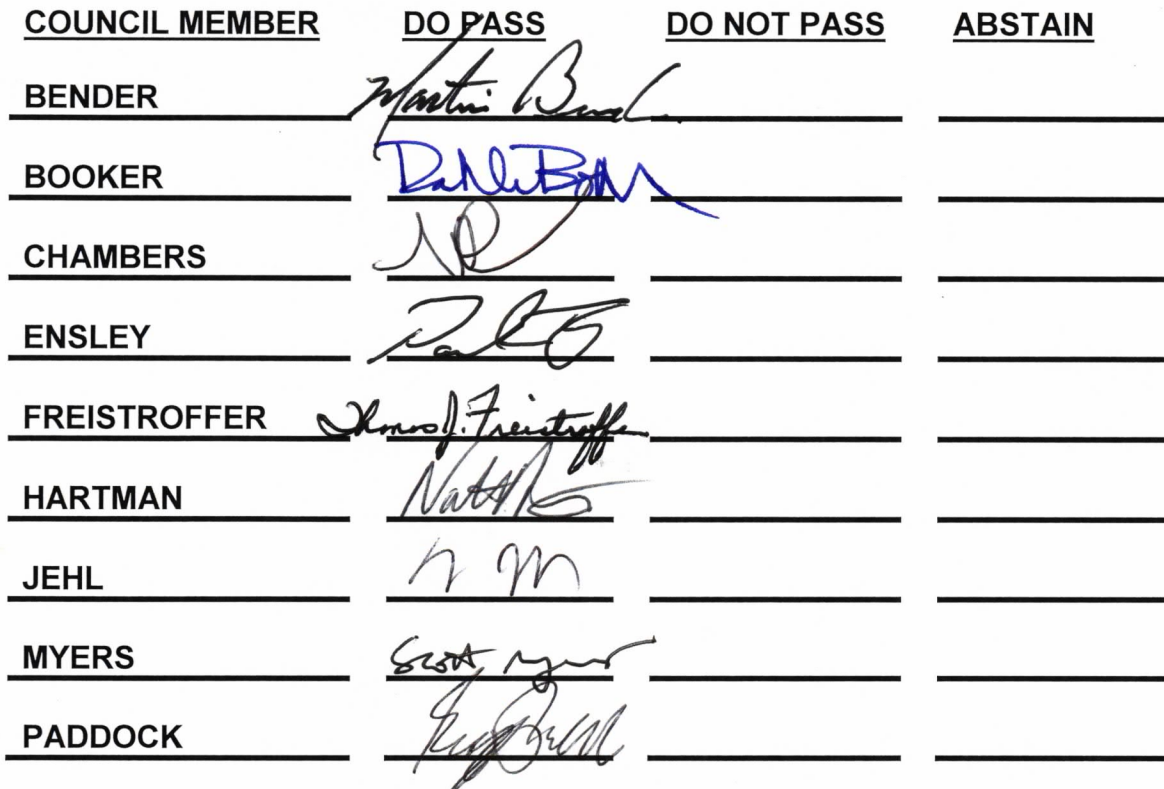 COUNCIL MEMBER DO PASS DO NOT PASS ABSTAIN
BENDER Martin
BOOKER
CHAMBERS
ENSLEY
FREISTROFFER Thomas J. Freistroffer
HARTMAN
JEHL
MYERS Scott Myers
PADDOCK